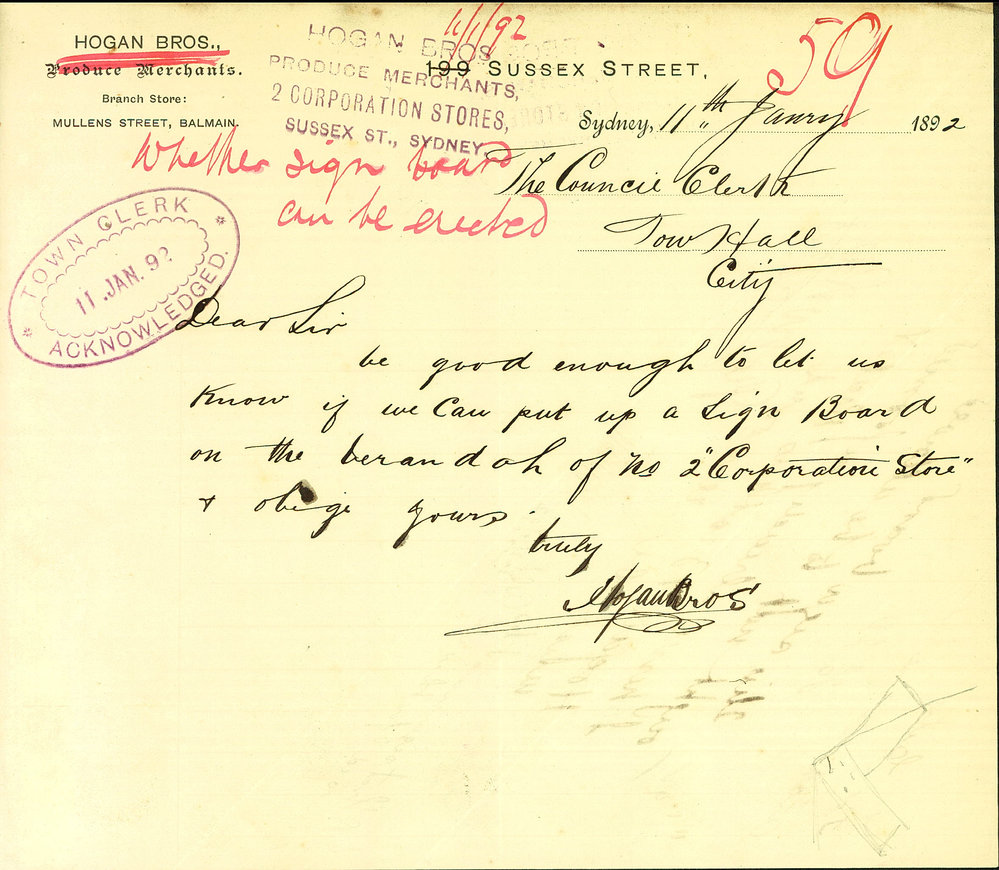 11/1/92
59
HOGAN BROS.,
Produce Merchants.
Branch Store:
MULLENS STREET, BALMAIN.
HOGAN BROS
PRODUCE MERCHANTS,
2 CORPORATION STORES,
SUSSEX ST., SYDNEY.
199 SUSSEX STREET,
Sydney, 11th Janry 1892
Whether sign board
can be erected
The Council Clerk
Town Hall
City
TOWN CLERK
11 JAN. 92
ACKNOWLEDGED.
Dear Sir
be good enough to let us
know if we can put up a Sign Board
on the berandah of No 2 "Corporation Store"
& oblige yours
truly
Hogan Bros